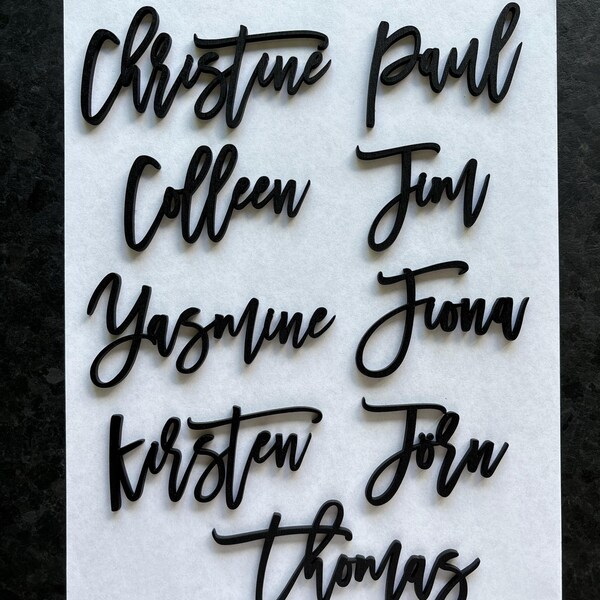 Christine Paul
Colleen Jim
Yasmine Fiona
Kirsten Jörn
Thomas